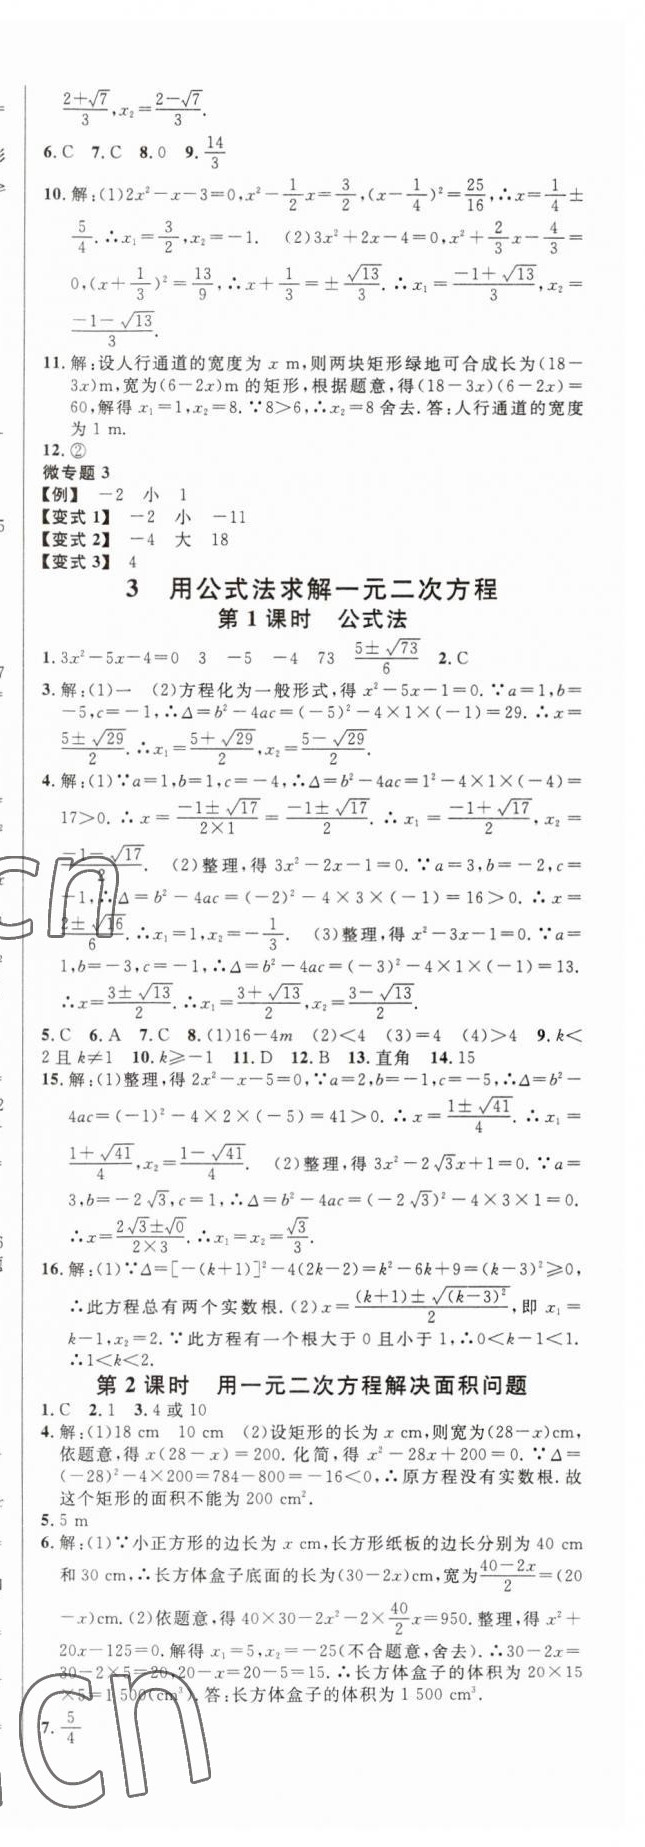 (2+√7)/3, x₂=(2-√7)/3.
6. C 7. C 8. 0 9. 14/3
10. 解:(1)2x²-x-3=0,x²-1/2x=3/2,(x-1/4)²=25/16,∴x=1/4±
5/4.∴x₁=3/2,x₂=-1. (2)3x²+2x-4=0,x²+2/3x-4/3=
0,(x+1/3)²=13/9,∴x+1/3=±√13/3.∴x₁=(-1+√13)/3,x₂=
(-1-√13)/3.
11. 解:设人行通道的宽度为 x m,则两块矩形绿地可合成长为(18-
3x)m,宽为(6-2x)m 的矩形,根据题意,得(18-3x)(6-2x)=
60,解得 x₁=1,x₂=8.∵8>6,∴x₂=8 舍去.答:人行通道的宽度
为 1 m.
12. ②
微专题 3
【例】 -2 小 1
【变式 1】 -2 小 -11
【变式 2】 -4 大 18
【变式 3】 4
3 用公式法求解一元二次方程
第 1 课时 公式法
1. 3x²-5x-4=0 3 -5 -4 73 (5±√73)/6 2. C
3. 解:(1)一 (2)方程化为一般形式,得 x²-5x-1=0.∵a=1,b=
-5,c=-1,∴Δ=b²-4ac=(-5)²-4×1×(-1)=29.∴x=
(5±√29)/2.∴x₁=(5+√29)/2,x₂=(5-√29)/2.
4. 解:(1)∵a=1,b=1,c=-4,∴Δ=b²-4ac=1²-4×1×(-4)=
17>0.∴x=(-1±√17)/(2×1)=(-1±√17)/2.∴x₁=(-1+√17)/2,x₂=
(-1-√17)/2. (2)整理,得 3x²-2x-1=0.∵a=3,b=-2,c=
-1,∴Δ=b²-4ac=(-2)²-4×3×(-1)=16>0.∴x=
(2±√16)/6.∴x₁=1,x₂=-1/3. (3)整理,得 x²-3x-1=0.∵a=
1,b=-3,c=-1,∴Δ=b²-4ac=(-3)²-4×1×(-1)=13.
∴x=(3±√13)/2.∴x₁=(3+√13)/2,x₂=(3-√13)/2.
5. C 6. A 7. C 8. (1)16-4m (2)<4 (3)=4 (4)>4 9. k<
2 且 k≠1 10. k≥-1 11. D 12. B 13. 直角 14. 15
15. 解:(1)整理,得 2x²-x-5=0,∵a=2,b=-1,c=-5,∴Δ=b²-
4ac=(-1)²-4×2×(-5)=41>0.∴x=(1±√41)/4.∴x₁=
(1+√41)/4,x₂=(1-√41)/4. (2)整理,得 3x²-2√3x+1=0.∵a=
3,b=-2√3,c=1,∴Δ=b²-4ac=(-2√3)²-4×3×1=0.
∴x=(2√3±√0)/(2×3).∴x₁=x₂=√3/3.
16. 解:(1)∵Δ=[-(k+1)]²-4(2k-2)=k²-6k+9=(k-3)²≥0,
∴此方程总有两个实数根.(2)x=((k+1)±√(k-3)²)/2,即 x₁=
k-1,x₂=2.∵此方程有一个根大于 0 且小于 1,∴0<k-1<1.
∴1<k<2.
第 2 课时 用一元二次方程解决面积问题
1. C 2. 1 3. 4 或 10
4. 解:(1)18 cm 10 cm (2)设矩形的长为 x cm,则宽为(28-x)cm,
依题意,得 x(28-x)=200.化简,得 x²-28x+200=0.∵Δ=
(-28)²-4×200=784-800=-16<0,∴原方程没有实数根.故
这个矩形的面积不能为 200 cm².
5. 5 m
6. 解:(1)∵小正方形的边长为 x cm,长方形纸板的边长分别为 40 cm
和 30 cm,∴长方体盒子底面的长为(30-2x)cm,宽为(40-2x)/2=(20
-x)cm.(2)依题意,得 40×30-2x²-2×40/2x=950.整理,得 x²+
20x-125=0.解得 x₁=5,x₂=-25(不合题意,舍去).∴30-2x=
30-2×5=20,20-x=20-5=15.∴长方体盒子的体积为 20×15
×5=1 500(cm³).答:长方体盒子的体积为 1 500 cm³.
7. 5/4
cn
cn